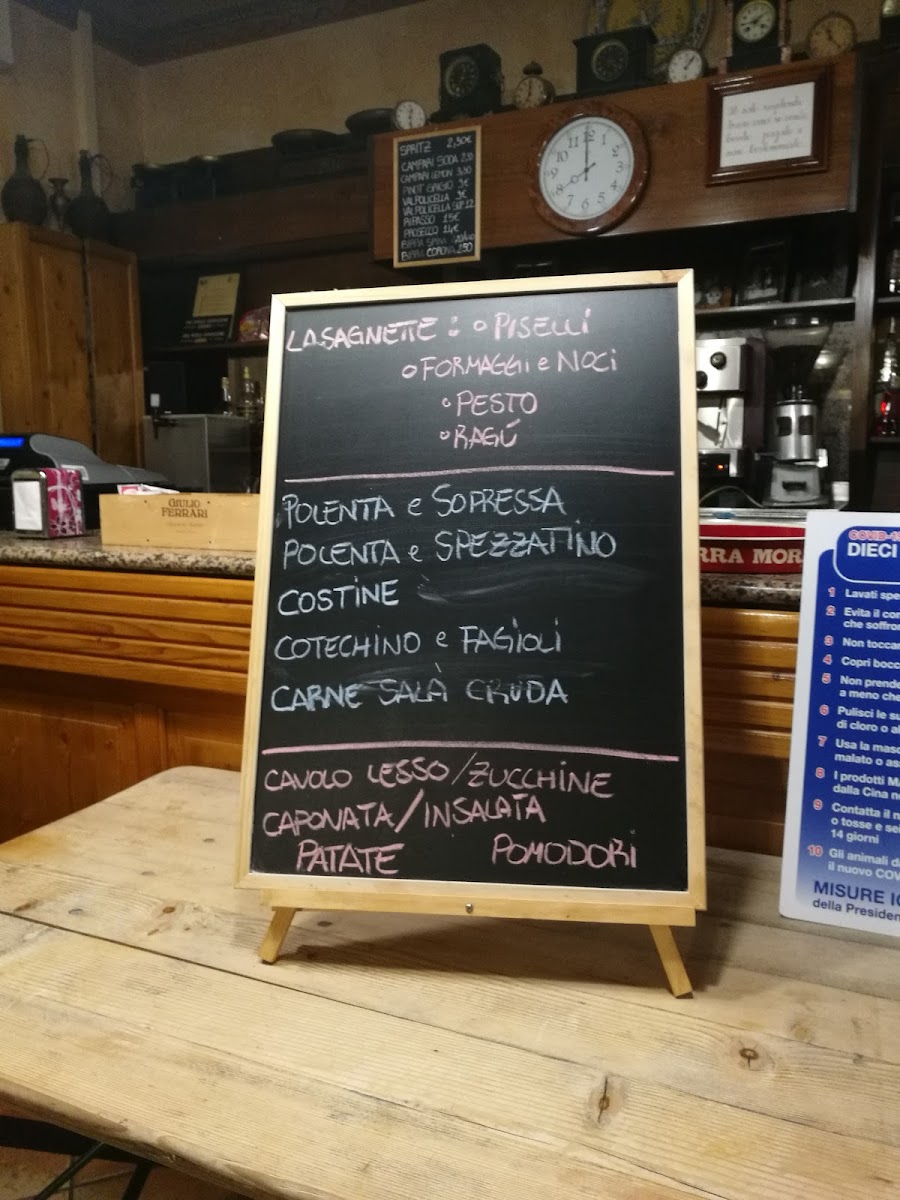 SPRITZ 2,30€
CAMPARI SODA 2,50
CAMPARI LEMON 3,50
PINOT GRIGIO 9€
VALPOLICELLA 9€
VALPOLICELLA SUP 12
RIPASSO 15€
PROSECCO 14€
BIRRA SPINA
BIRRA CORONA 2,50
12
11
10
9
8
7
6
5
4
3
2
1
LASAGNETTE: o PISELLI
o FORMAGGI e NOCI
o PESTO
o RAGÚ
POLENTA e SOPRESSA
POLENTA e SPEZZATINO
COSTINE
COTECHINO e FAGIOLI
CARNE SALÀ CRUDA
CAVOLO LESSO/ZUCCHINE
CAPONATA/INSALATA
PATATE POMODORI
GIULIO
FERRARI
RRA MOR
COVID-1
DIECI
1 Lavati spe
2 Evita il con
che soffron
3 Non toccar
4 Copri bocc
5 Non prende
a meno che
6 Pulisci le su
di cloro o al
7 Usa la masc
malato o ass
8 I prodotti MA
dalla Cina no
9 Contatta il n
o tosse e sei
14 giorni
10 Gli animali da
il nuovo COV
MISURE IG
della Presiden